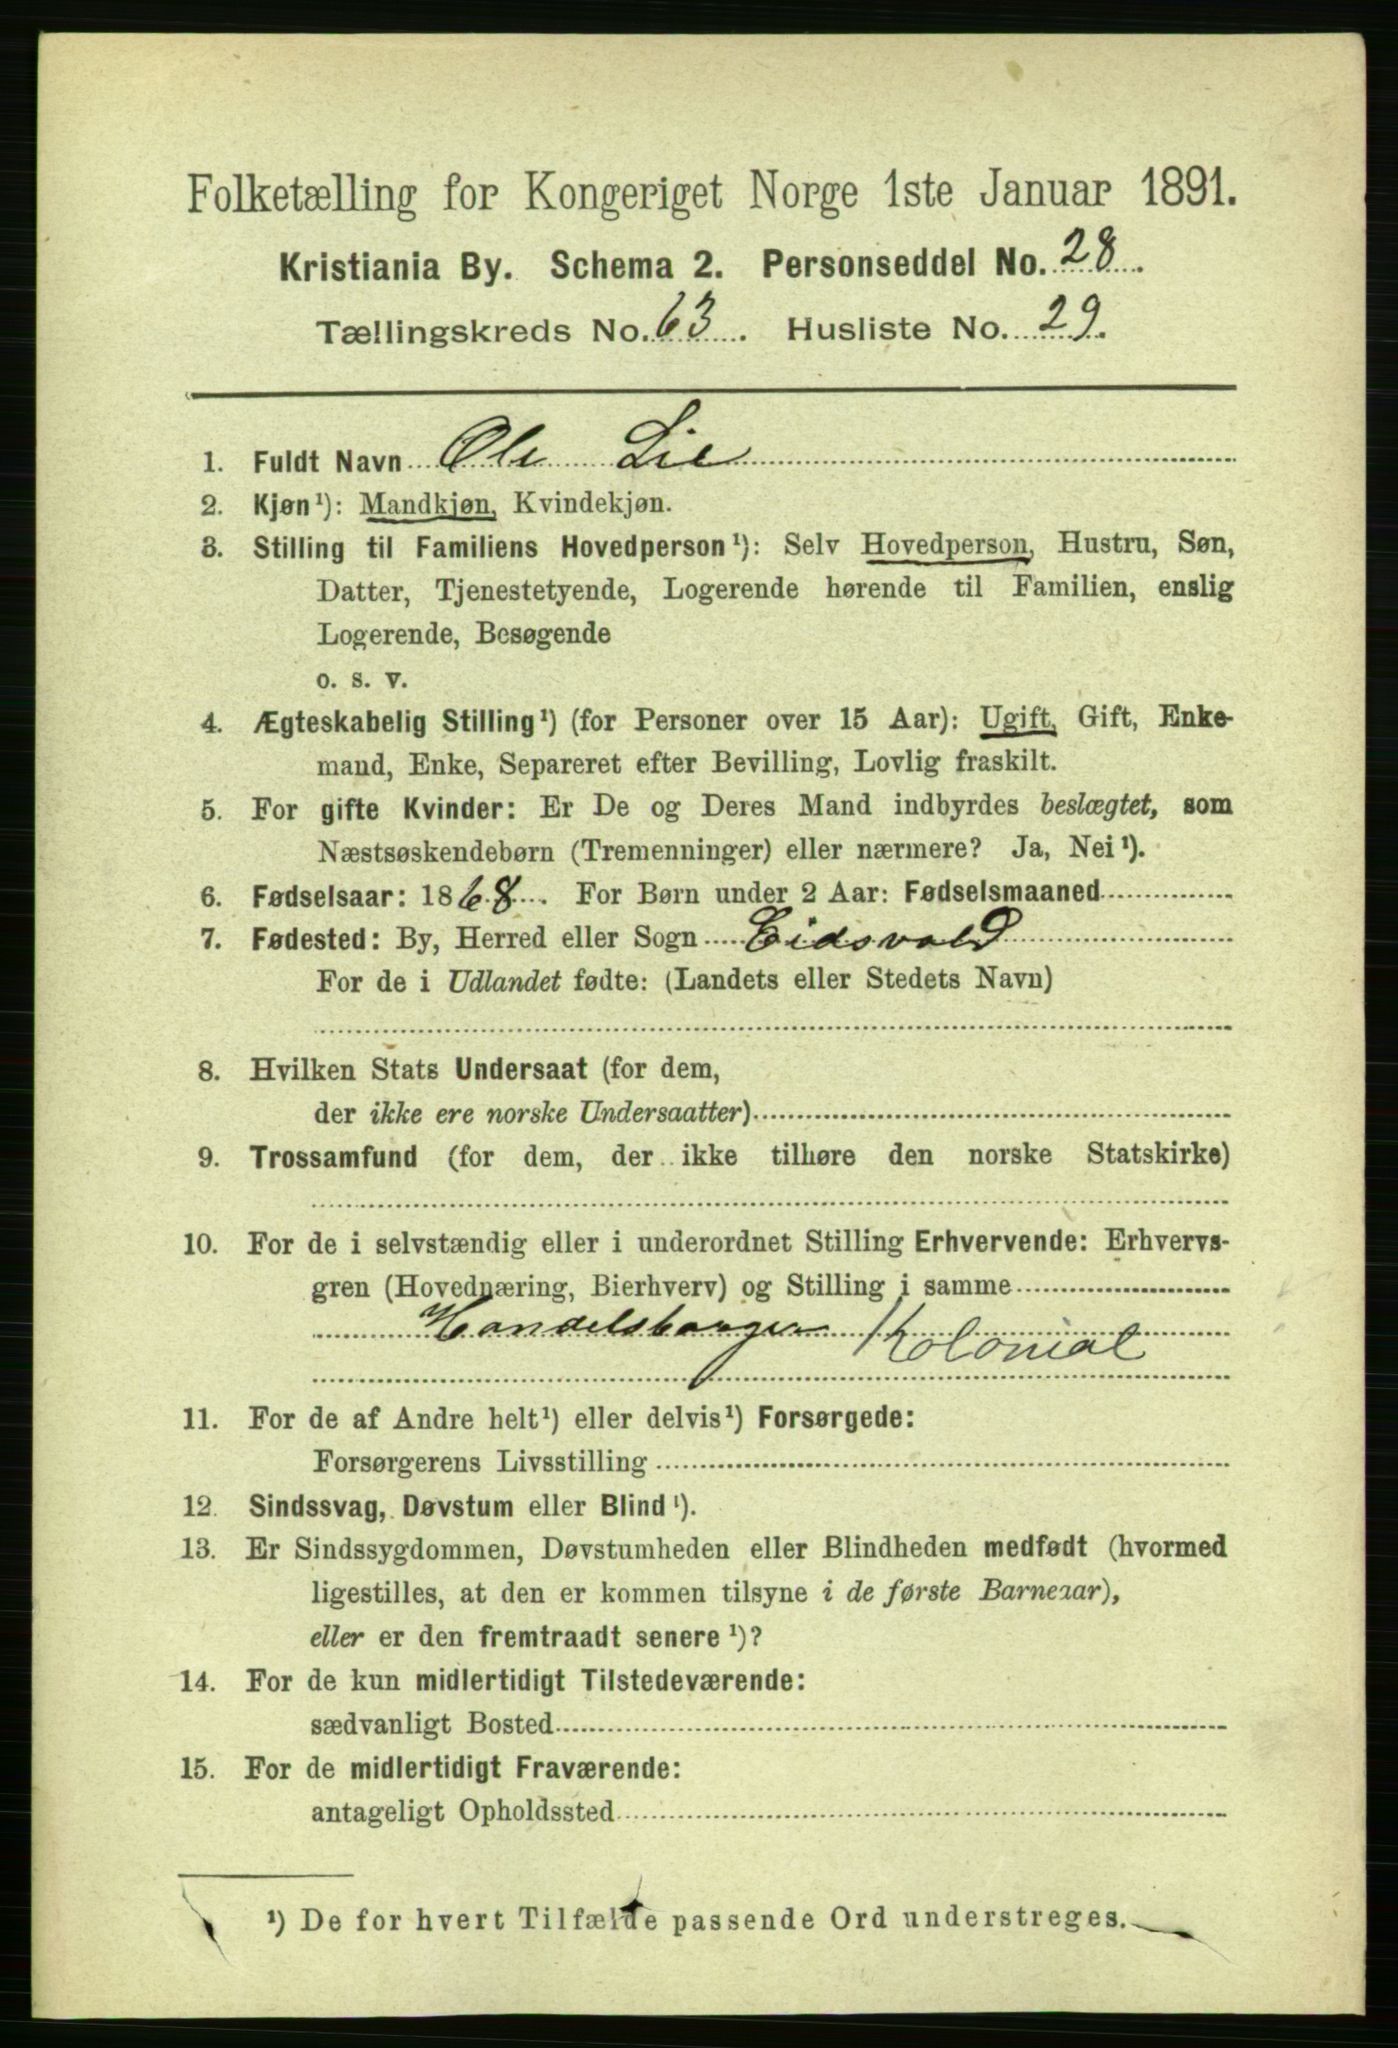 Folketælling for Kongeriget Norge 1ste Januar 1891.
Kristiania By. Schema 2. Personseddel No. 28.
Tællingskreds No. 63. Husliste No. 29.
1. Fuldt Navn Ole Lie
2. Kjøn¹): Mandkjøn, Kvindekjøn.
3. Stilling til Familiens Hovedperson¹): Selv Hovedperson, Hustru, Søn,
Datter, Tjenestetyende, Logerende hørende til Familien, enslig
Logerende, Besøgende
o. s. v.
4. Ægteskabelig Stilling¹) (for Personer over 15 Aar): Ugift, Gift, Enke-
mand, Enke, Separeret efter Bevilling, Lovlig fraskilt.
5. For gifte Kvinder: Er De og Deres Mand indbyrdes beslægtet, som
Næstsøskendebørn (Tremenninger) eller nærmere? Ja, Nei¹).
6. Fødselsaar: 1868. For Børn under 2 Aar: Fødselsmaaned
7. Fødested: By, Herred eller Sogn Eidsvold
For de i Udlandet fødte: (Landets eller Stedets Navn)
8. Hvilken Stats Undersaat (for dem,
der ikke ere norske Undersaatter)
9. Trossamfund (for dem, der ikke tilhøre den norske Statskirke)
10. For de i selvstændig eller i underordnet Stilling Erhvervende: Erhvervs-
gren (Hovednæring, Bierhverv) og Stilling i samme
Handelsborger Kolonial
11. For de af Andre helt¹) eller delvis¹) Forsørgede:
Forsørgerens Livsstilling
12. Sindssvag, Døvstum eller Blind¹).
13. Er Sindssygdommen, Døvstumheden eller Blindheden medfødt (hvormed
ligestilles, at den er kommen tilsyne i de første Barneaar),
eller er den fremtraadt senere¹)?
14. For de kun midlertidigt Tilstedeværende:
sædvanligt Bosted
15. For de midlertidigt Fraværende:
antageligt Opholdssted
¹) De for hvert Tilfælde passende Ord understreges.